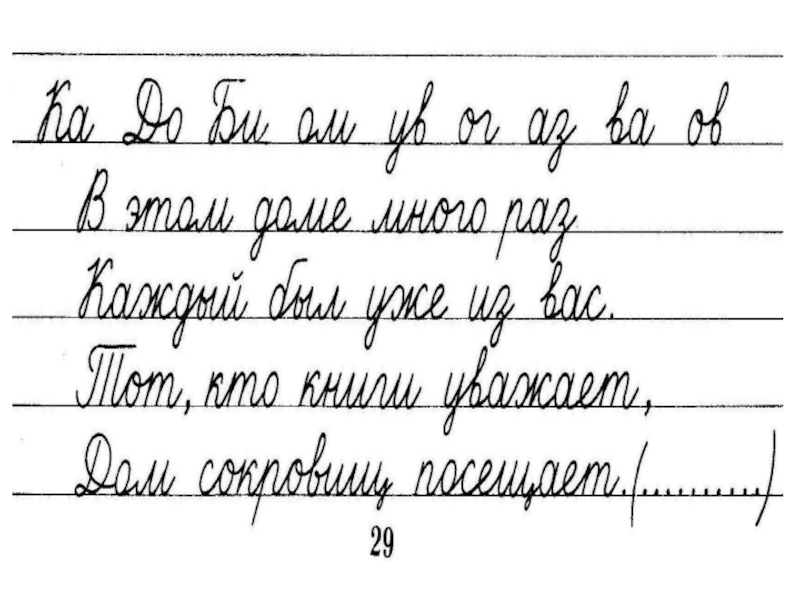 Ка До Би ом ув ог аз ва ов
В этом доме много раз
Каждый был уже из вас.
Тот, кто книги уважает,
Дом сокровищ посещает.(..........)
29